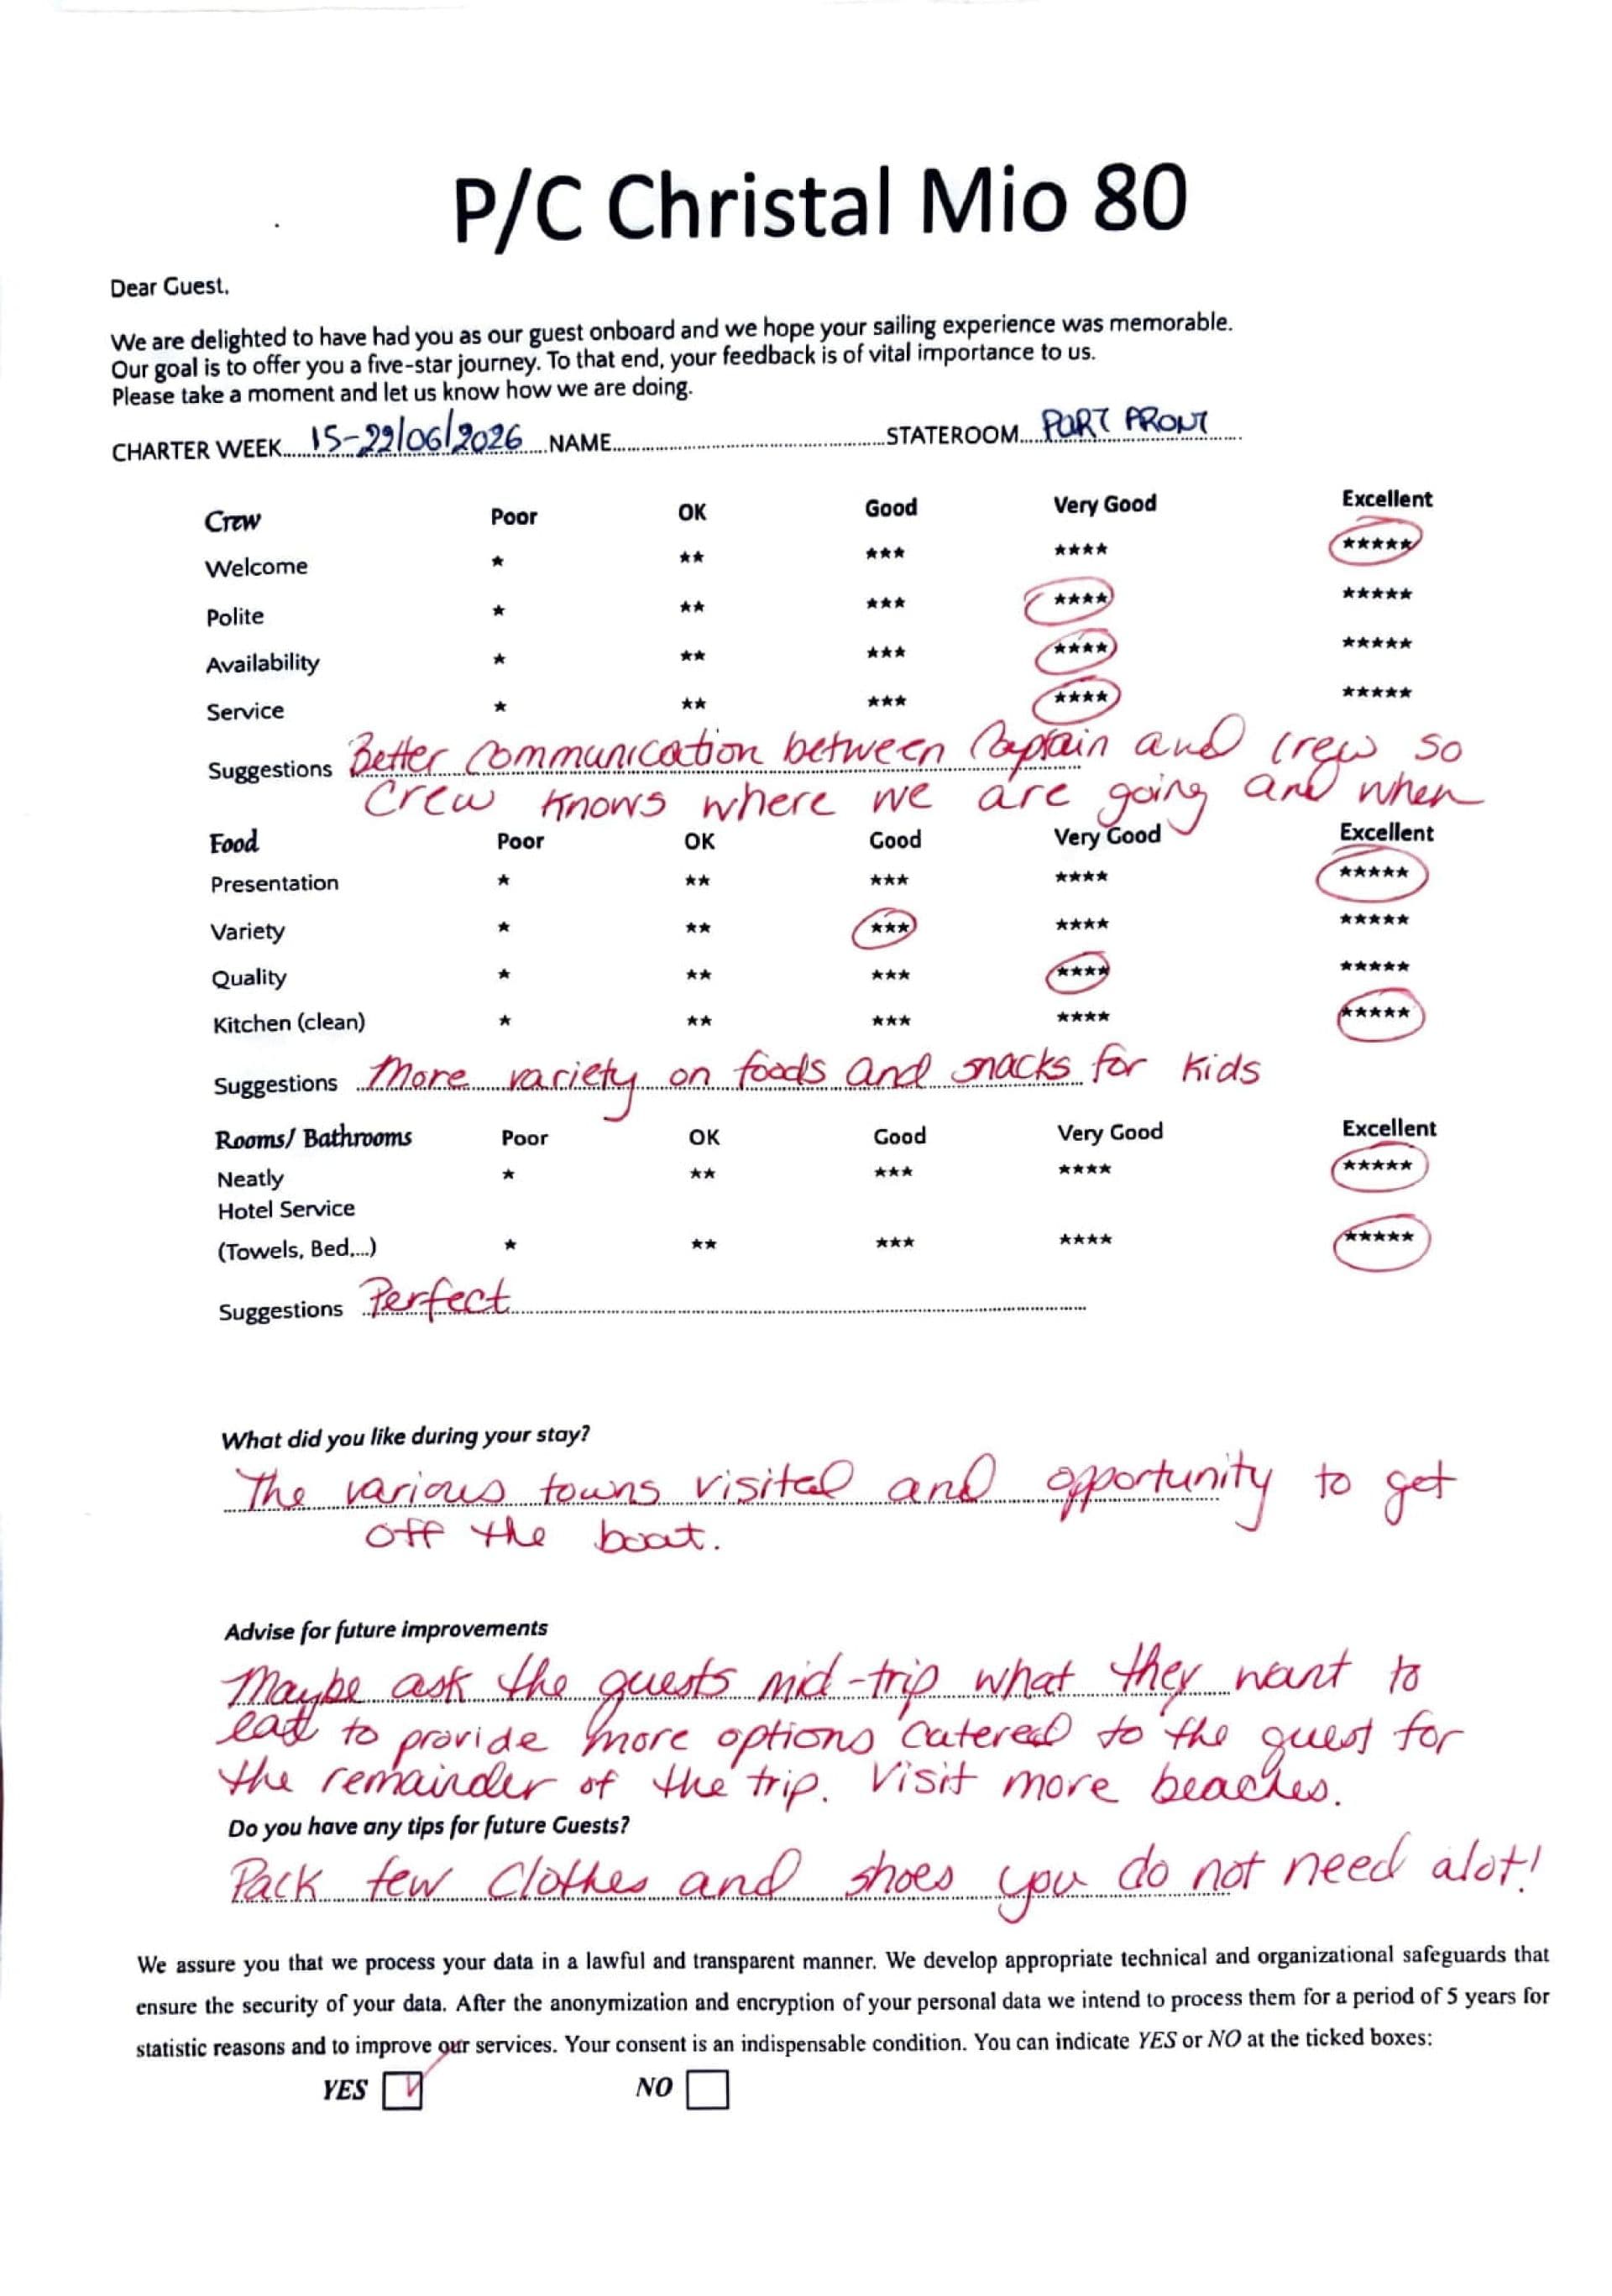 P/C Christal Mio 80
Dear Guest,
We are delighted to have had you as our guest onboard and we hope your sailing experience was memorable.
Our goal is to offer you a five-star journey. To that end, your feedback is of vital importance to us.
Please take a moment and let us know how we are doing.
CHARTER WEEK.....15-22/06/2026....NAME..............................STATEROOM....PORT FRONT......
Crew Poor OK Good Very Good Excellent
Welcome * ** *** **** *****
Polite * ** *** **** *****
Availability * ** *** **** *****
Service * ** *** **** *****
Suggestions Better communication between Captain and crew so
crew knows where we are going and when
Food Poor OK Good Very Good Excellent
Presentation * ** *** **** *****
Variety * ** *** **** *****
Quality * ** *** **** *****
Kitchen (clean) * ** *** **** *****
Suggestions More variety on foods and snacks for kids
Rooms/ Bathrooms Poor OK Good Very Good Excellent
Neatly * ** *** **** *****
Hotel Service
(Towels, Bed,...) * ** *** **** *****
Suggestions Perfect
What did you like during your stay?
The various towns visited and opportunity to get
off the boat.
Advise for future improvements
Maybe ask the guests mid-trip what they want to
eat to provide more options catered to the guest for
the remainder of the trip. Visit more beaches.
Do you have any tips for future Guests?
Pack few clothes and shoes you do not need alot!
We assure you that we process your data in a lawful and transparent manner. We develop appropriate technical and organizational safeguards that
ensure the security of your data. After the anonymization and encryption of your personal data we intend to process them for a period of 5 years for
statistic reasons and to improve our services. Your consent is an indispensable condition. You can indicate YES or NO at the ticked boxes:
YES NO